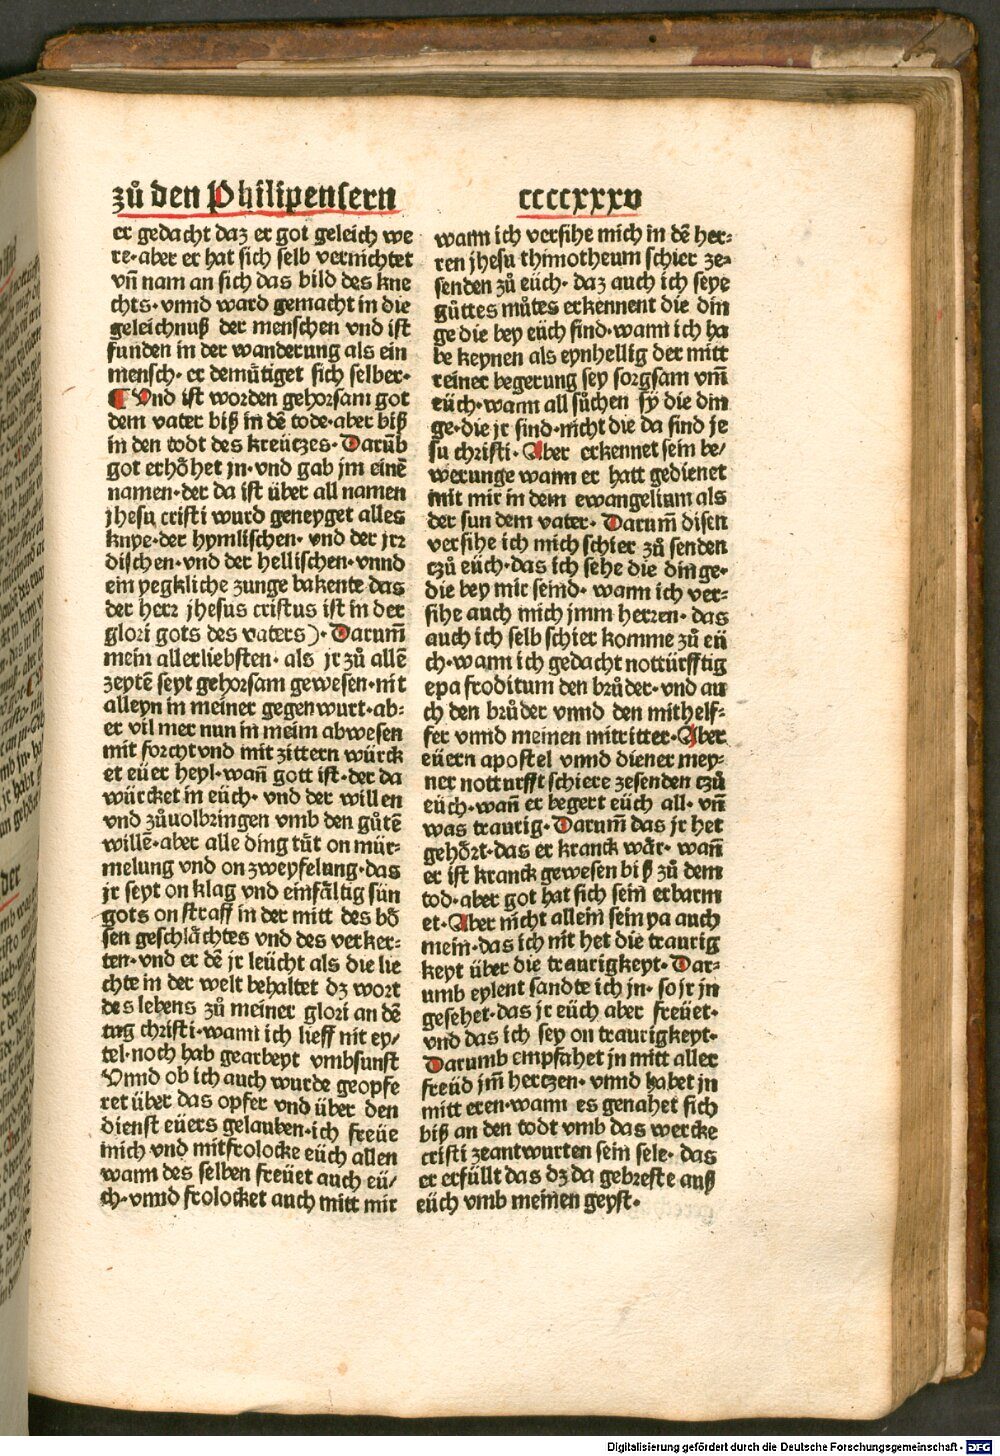 zů den Philipensern
ccccxxxv
er gedacht daz er got geleich we
re·aber er hat sich selb vernichtet
vñ nam an sich das bild des kne
chts·vnnd ward gemacht in die
geleichnuß der menschen vnd ist
funden in der wanderung als ein
mensch·er demütiget sich selber·
¶ Vnd ist worden gehorsam got
dem vater biß in dē tode·aber biß
in den todt des kreüczes·Darūb
got erhöhet jn·vnd gab jm einē
namen·der da ist über all namen
jhesu cristi wurd geneyget alles
knye·der hymlischen·vnd der jrꝛ
dischen·vnd der hellischen·vnnd
ein yegkliche zunge bakente das
der herꝛ jhesus cristus ist in der
glori gots des vaters)·Darum̄
mein allerliebsten·als jr zů allē
zeytē seyt gehorsam gewesen·nit
alleyn in meiner gegenwurt·ab⸗
er vil mer nun in meim abwesen
mit forcht vnd mit zittern würck
et eüer heyl·wañ gott ist·der da
würcket in eüch·vnd der willen
vnd zůuolbringen vmb den gůtē
willē·aber alle ding tůt on mür⸗
melung vnd on zweyfelung·das
jr seyt on klag vnd einfältig sün
gots on straff in der mitt des bö
sen geschlächtes vnd des verker⸗
ten·vnd er dē jr leücht als die lie
chte in der welt behaltet dz wort
des lebens zů meiner glori an dē
tag christi·wann ich lieff nit ey/
tel·noch hab gearbeyt vmbsunst
Vnnd ob ich auch wurde geopfe
ret über das opfer vnd über den
dienst eüers gelauben·ich freüe
mich vnd mitfrolocke eüch allen
wann des selben freüet auch eü/
ch·vnnd frolocket auch mitt mir
wann ich versihe mich in dē her⸗
ren jhesu thimotheum schier ze⸗
senden zů eüch·daz auch ich seye
gůttes můtes erkennent die din
ge die bey eüch sind·wann ich ha
be keynen als eynhellig der mitt
reiner begerung sey sorgsam vm̄
eüch·wann all sůchen sy die din
ge·die jr sind·nicht die da sind je
su christi·Aber erkennet sein be/
werunge wann er hatt gedienet
mit mir in dem ewangelium als
der sun dem vater·Darum̄ disen
versihe ich mich schier zů senden
czů eüch·das ich sehe die dinge·
die bey mir seind·wann ich ver⸗
sihe auch mich jmm herren·das
auch ich selb schier komme zů eü
ch·wann ich gedacht nottürfftig
epafroditum den brůder·vnd au
ch den brůder vnnd den mithelf⸗
fer vnnd meinen mitritter·Aber
eüern apostel vnnd diener mey⸗
ner notturfft schiere zesenden czů
eüch·wañ er begert eüch all·vñ
was traurig·Darum̄ das jr het
gehört·das er kranck wär·wañ
er ist kranck gewesen biß zů dem
tod·aber got hat sich sein erbarm
et·Aber nicht allein sein ya auch
mein·das ich nit het die traurig
keyt über die traurigkeyt·Dar⸗
umb eylent sandte ich jn·so jr jn
gesehet·das jr eüch aber freüet·
vnd das ich sey on traurigkeyt·
Darumb empfahet jn mitt aller
freüd jm̄ herczen·vnnd habet jn
mitt eren·wann es genahet sich
biß an den todt vmb das wercke
cristi zeantwurten sein sele·das
er erfüllt das dz da gebreste auß
eüch vmb meinen geyst·
Digitalisierung gefördert durch die Deutsche Forschungsgemeinschaft - DFG